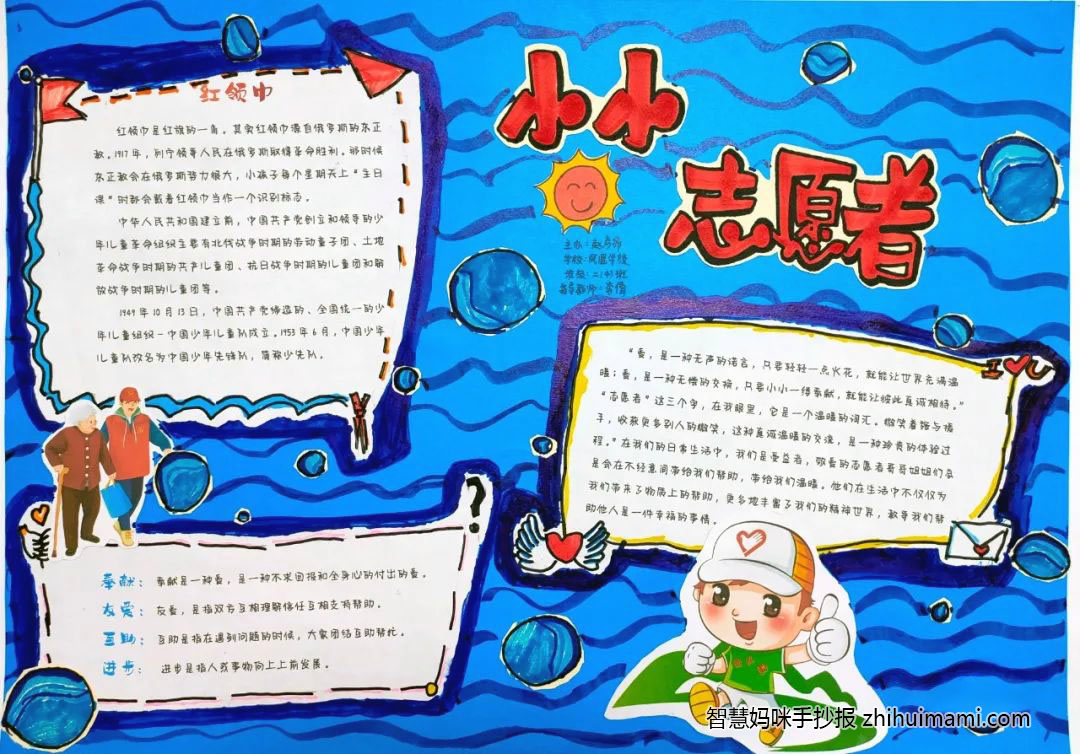 小小
志愿者
红领巾
红领巾是红旗的一角。其实红领巾源自俄罗斯的东正
教。1917年，列宁领导人民在俄罗斯取得革命胜利。那时候
东正教会在俄罗斯势力很大，小孩子每个星期天上“主日
课”时都会戴着红领巾当作一个识别标志。
中华人民共和国建立前，中国共产党创立和领导的少
年儿童革命组织主要有北伐战争时期的劳动童子团、土地
革命战争时期的共产儿童团、抗日战争时期的儿童团和解
放战争时期的儿童团等。
1949年10月13日，中国共产党缔造的、全国统一的少
年儿童组织－中国少年儿童队成立。1953年6月，中国少年
儿童队改名为中国少年先锋队，简称少先队。
主办：赵
学校：学校
班级：二(4)班
指导教师：李倩
“爱，是一种无声的诺言，只要轻轻一点火花，就能让世界充满温
暖；爱，是一种无憾的交换，只要小小一缕奉献，就能让彼此真诚相待。”
“志愿者”这三个字，在我眼里，它是一个温暖的词汇。微笑着握与横
手，收获更多别人的微笑，这种真诚温暖的交流，是一种珍贵的体验过
程。”在我们的日常生活中，我们是受益者，敬爱的志愿者哥哥姐姐们总
是会在不经意间带给我们帮助，带给我们温暖。他们在生活中不仅仅为
我们带来了物质上的帮助，更多地丰富了我们的精神世界，教导我们帮
助他人是一件幸福的事情。
I U
奉献：奉献是一种爱，是一种不求回报和全身心的付出的爱。
友爱：友爱，是指双方互相理解信任互相支持帮助。
互助：互助是指在遇到问题的时候，大家团结互助帮忙。
进步：进步是指人或事物向上上前发展。
?
智慧妈咪手抄报 zhihuimami.com